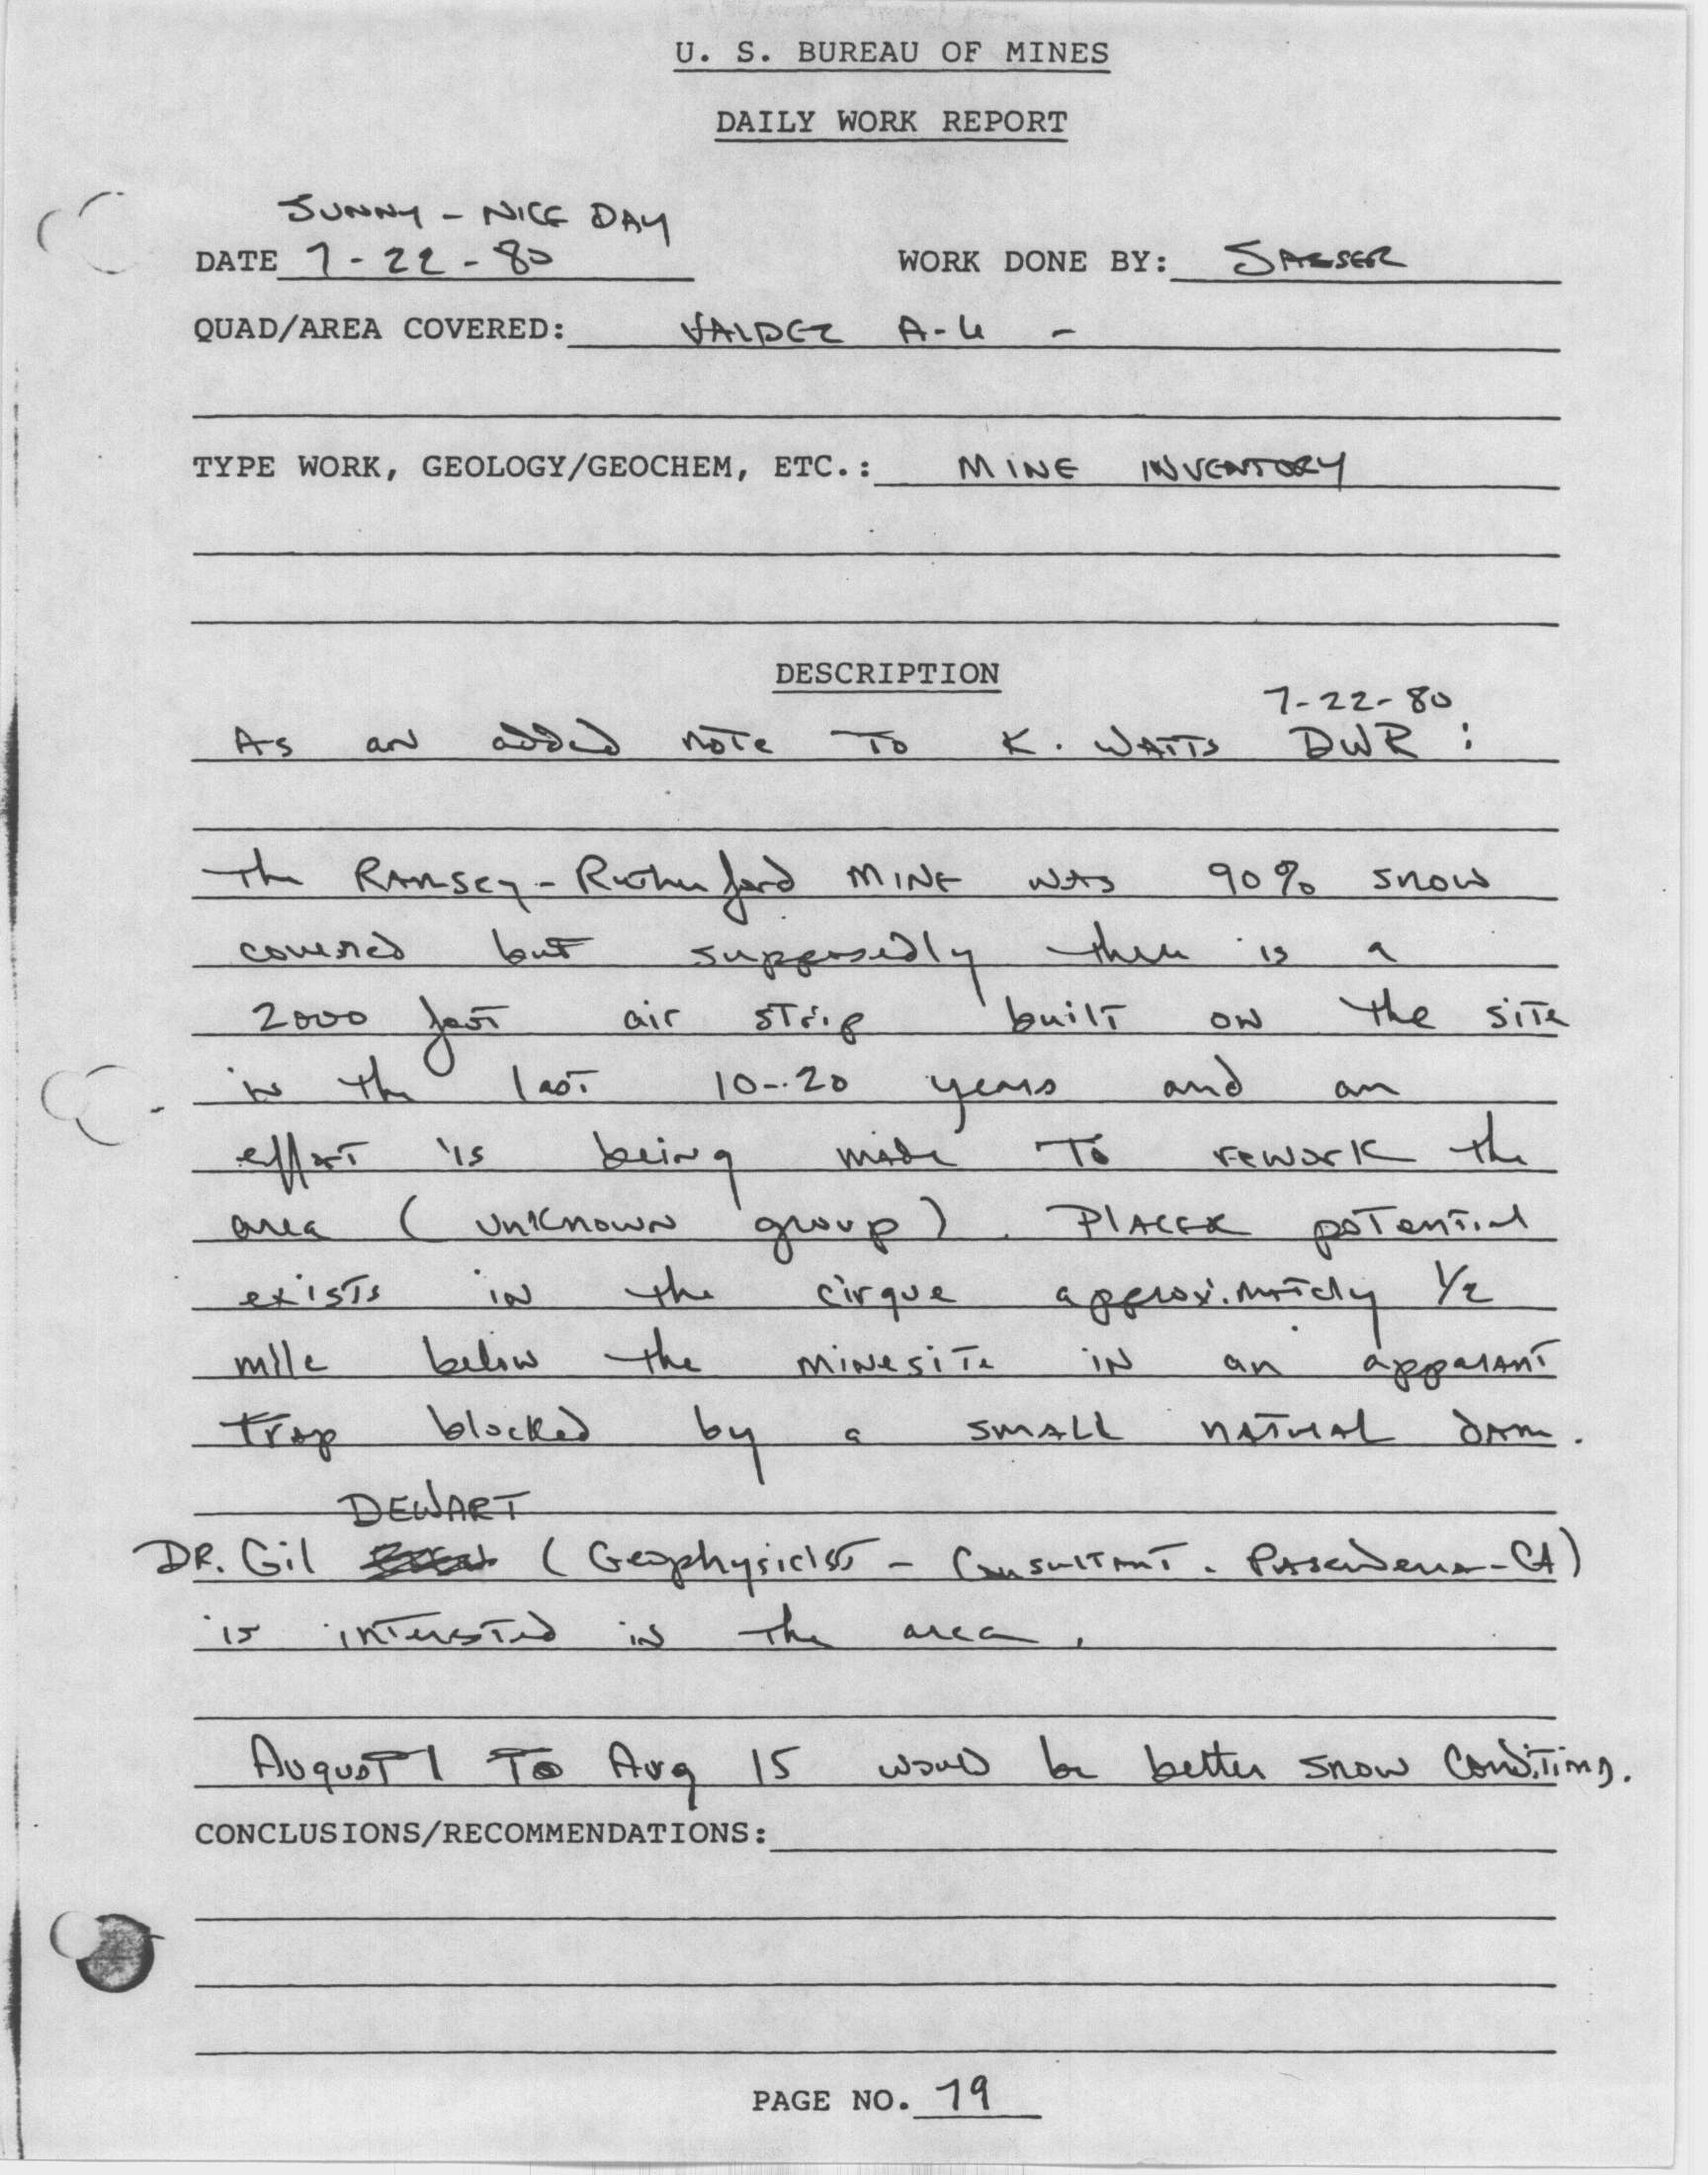 U. S. BUREAU OF MINES
DAILY WORK REPORT
SUNNY - NICE DAY
DATE 7-22-80 WORK DONE BY:
QUAD/AREA COVERED: VALDEZ A-4 -
TYPE WORK, GEOLOGY/GEOCHEM, ETC.: MINE INVENTORY
DESCRIPTION
7-22-80
As an added note To K. WATTS DWR :
The RAMSEY-Rutherford MINE was 90% snow
covered but supposedly there is a
2000 foot air strip built on the site
in the last 10-20 years and an
effort is being made To rework the
area (unknown group). PLACER potential
exists in the cirque approximately 1/2
mile below the minesite in an apparant
Trap blocked by a SMALL natural dam.
DEWART
DR. Gil (Geophysicist - Consultant - Pasadena-CA)
is interested in the area.
August 1 To Aug 15 would be better snow conditions.
CONCLUSIONS/RECOMMENDATIONS:
PAGE NO. 79